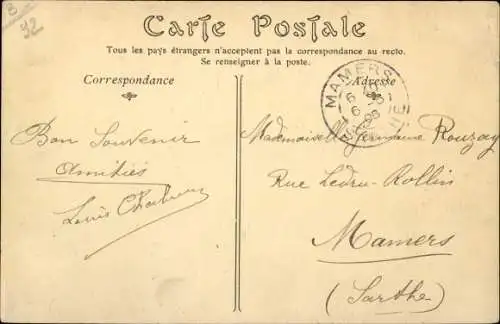 B
92
Carte Postale
Tous les pays étrangers n'acceptent pas la correspondance au recto.
Se renseigner à la poste.
Correspondance
Adresse
MAMERS
SARTHE
Bon Souvenir
Amitiés
Louis
Mademoiselle Germaine Rouzay
Rue Ledru-Rollin
Mamers
(Sarthe)